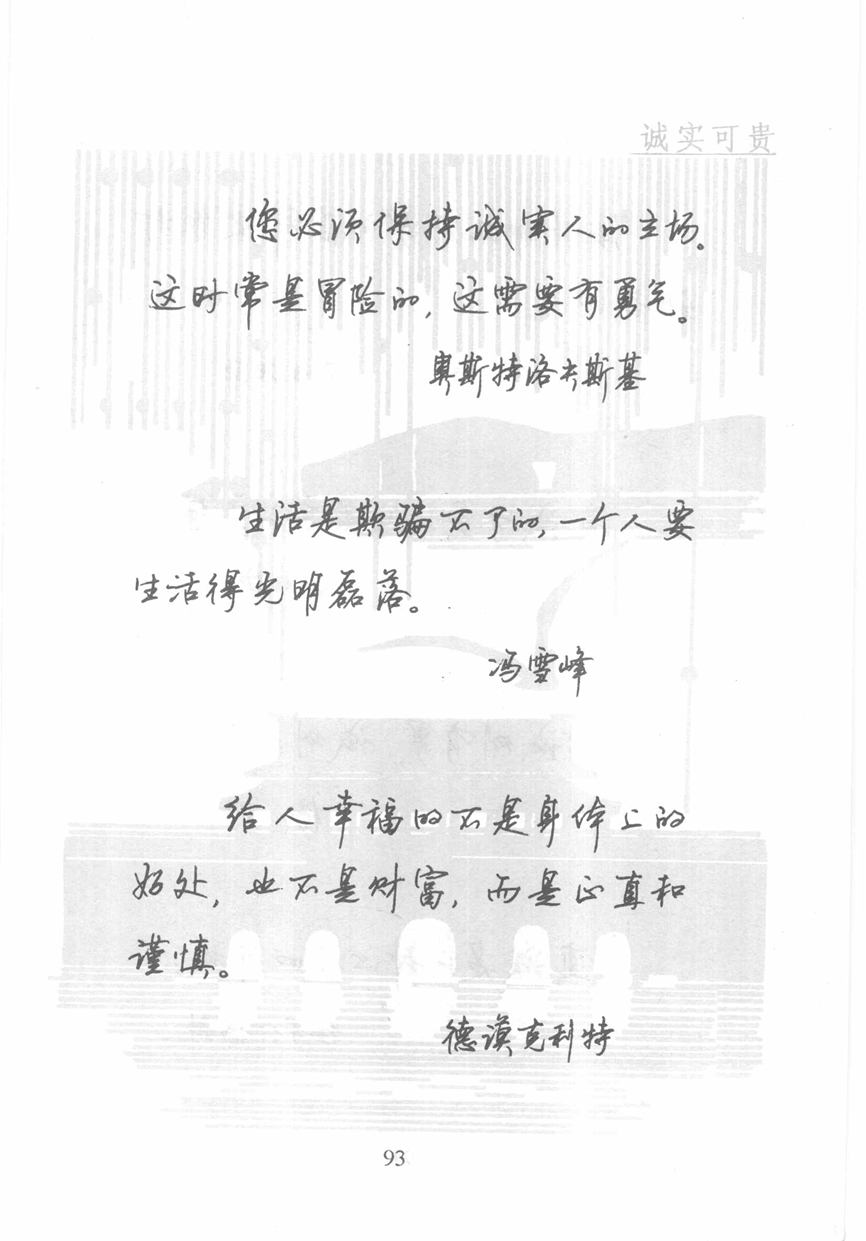 诚实可贵
您必须保持诚实人的立场。
这时常是冒险的，这需要有勇气。
奥斯特洛夫斯基
生活是欺骗不了的，一个人要
生活得光明磊落。
冯雪峰
给人幸福的不是身体上的
好处，也不是财富，而是正直和
谨慎。
德谟克利特
93